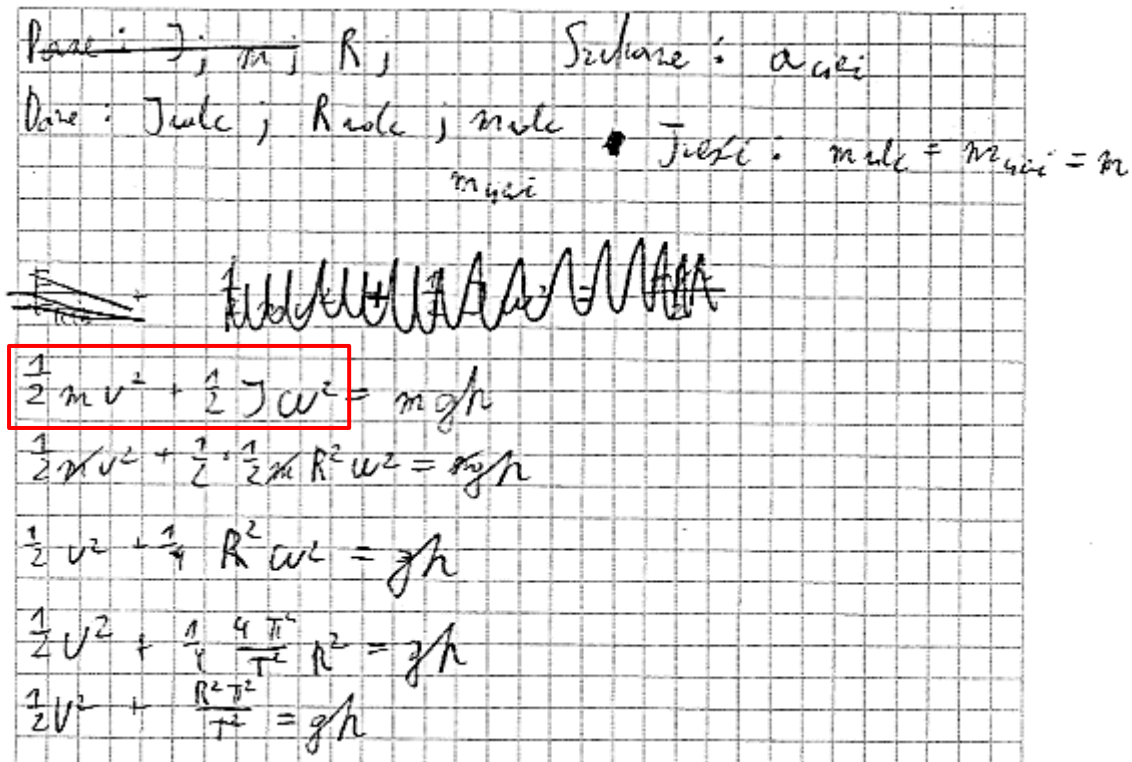 Dane : J; m; R; Szukane : a cięż
Dane : J walc ; R walc ; m walc Jeśli : m walc = m cięż = m
m cięż
1/2 m v² + 1/2 J ω² = mgh
1/2 m v² + 1/2 · 1/2 m R² ω² = mgh
1/2 v² + 1/4 R² ω² = gh
1/2 v² + 1/4 4π²/T² R² = gh
1/2 v² + R²π²/T² = gh